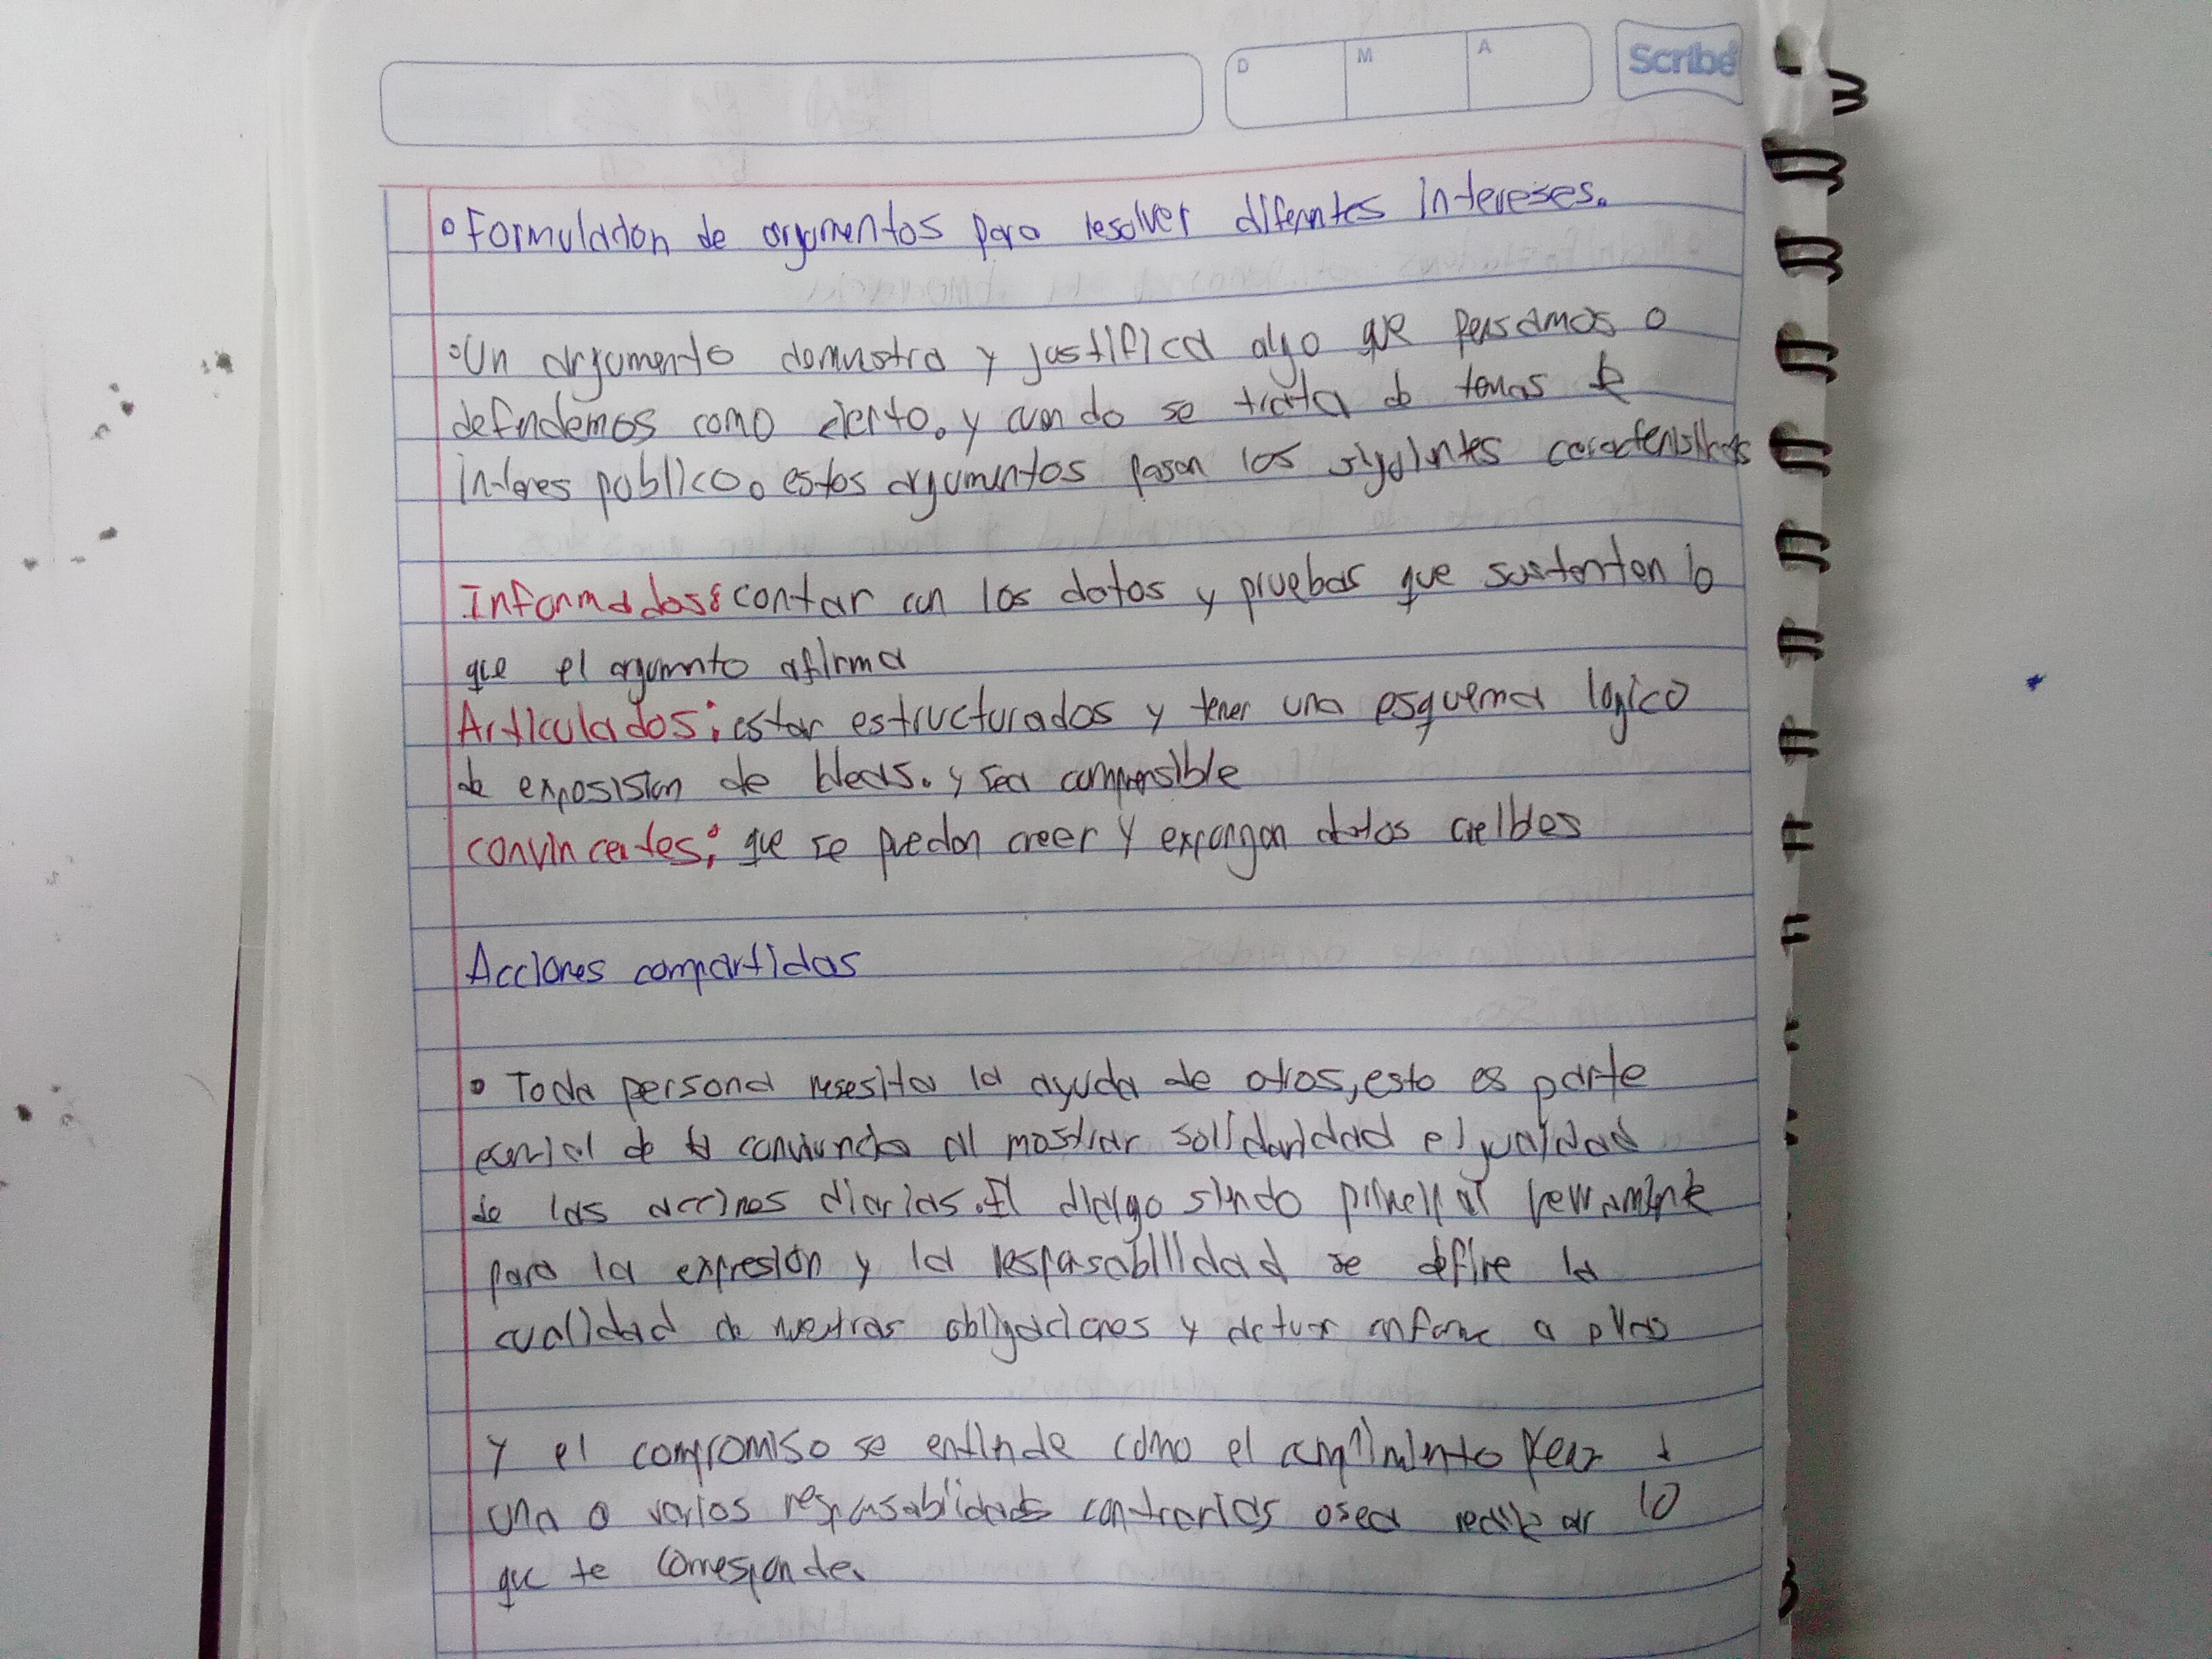 D M A Scribe
°Formulación de argumentos para resolver difenntes intereses.
°Un argumento demustra y justifica algo que pensamos o
defendemos como cierto. y cuando se trata de temas de
interes publico. estos argumentos pasan las siguintes caracteristicas
Informados: contar con los datos y pruebas que sustenten lo
que el argumnto afirma
Articulados: estar estructurados y tener una esquema logico
de exposision de ideas. y sea comprensible
convincentes: que se puedan creer y expongan datos creibles
Acciones compartidas
° Toda persona nesesita la ayuda de otros, esto es parte
de la convivencia al mostrar solidaridad e igualdad
de las acciones diarias. El dialgo sindo principal
para la expresión y la resposabilidad se define la
cualidad de nuestras obligaciones y actuar
Y el compromiso se entinde como el
una o varios contrarias osea realizar lo
que te corresponde.